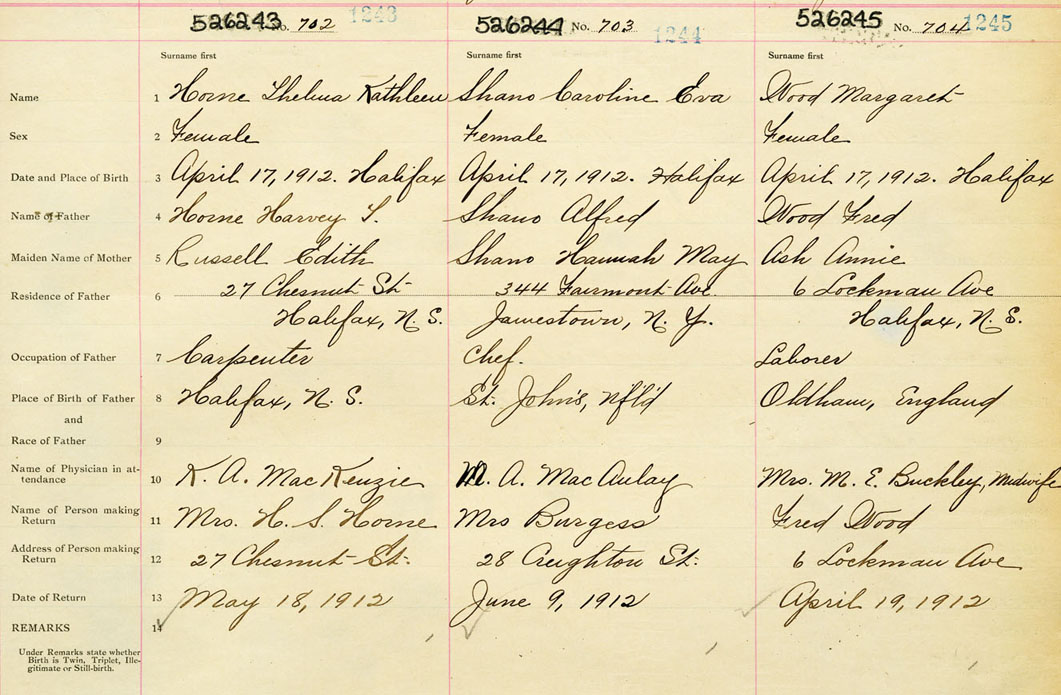 526243 No. 702 1243 526244 No. 703 1244 526245 No. 704 1245
Surname first Surname first Surname first
Name 1 Horne Thelma Kathleen Shano Caroline Eva Wood Margaret
Sex 2 Female Female Female
Date and Place of Birth 3 April 17, 1912. Halifax April 17, 1912. Halifax April 17, 1912. Halifax
Name of Father 4 Horne Harvey S. Shano Alfred Wood Fred
Maiden Name of Mother 5 Russell Edith Shano Hannah May Ash Annie
Residence of Father 6 27 Chesnut St. 344 Fairmont Ave. 6 Lockman Ave
Halifax, N. S. Jamestown, N. Y. Halifax, N. S.
Occupation of Father 7 Carpenter Chef. Laborer
Place of Birth of Father 8 Halifax, N. S. St. John's, Nfld Oldham, England
and
Race of Father 9
Name of Physician in at-
tendance 10 K. A. MacKenzie M. A. MacAulay Mrs. M. E. Buckley, Midwife
Name of Person making
Return 11 Mrs. H. S. Horne Mrs Burgess Fred Wood
Address of Person making
Return 12 27 Chesnut St. 28 Creighton St. 6 Lockman Ave
Date of Return 13 May 18, 1912 June 9, 1912 April 19, 1912
REMARKS 14
Under Remarks state whether
Birth is Twin, Triplet, Ille-
gitimate or Still-birth.